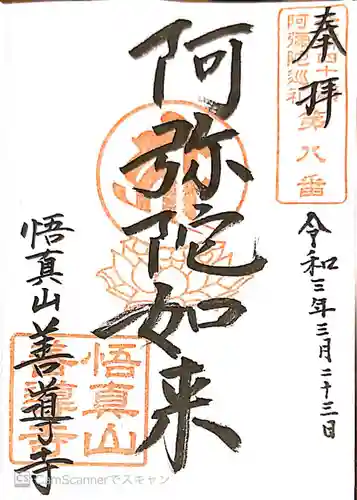 奉拝
阿弥陀巡礼
第八番
令和三年三月二十三日
阿弥陀如来
悟真山善導寺
悟真山
善導寺
CS CamScannerでスキャン